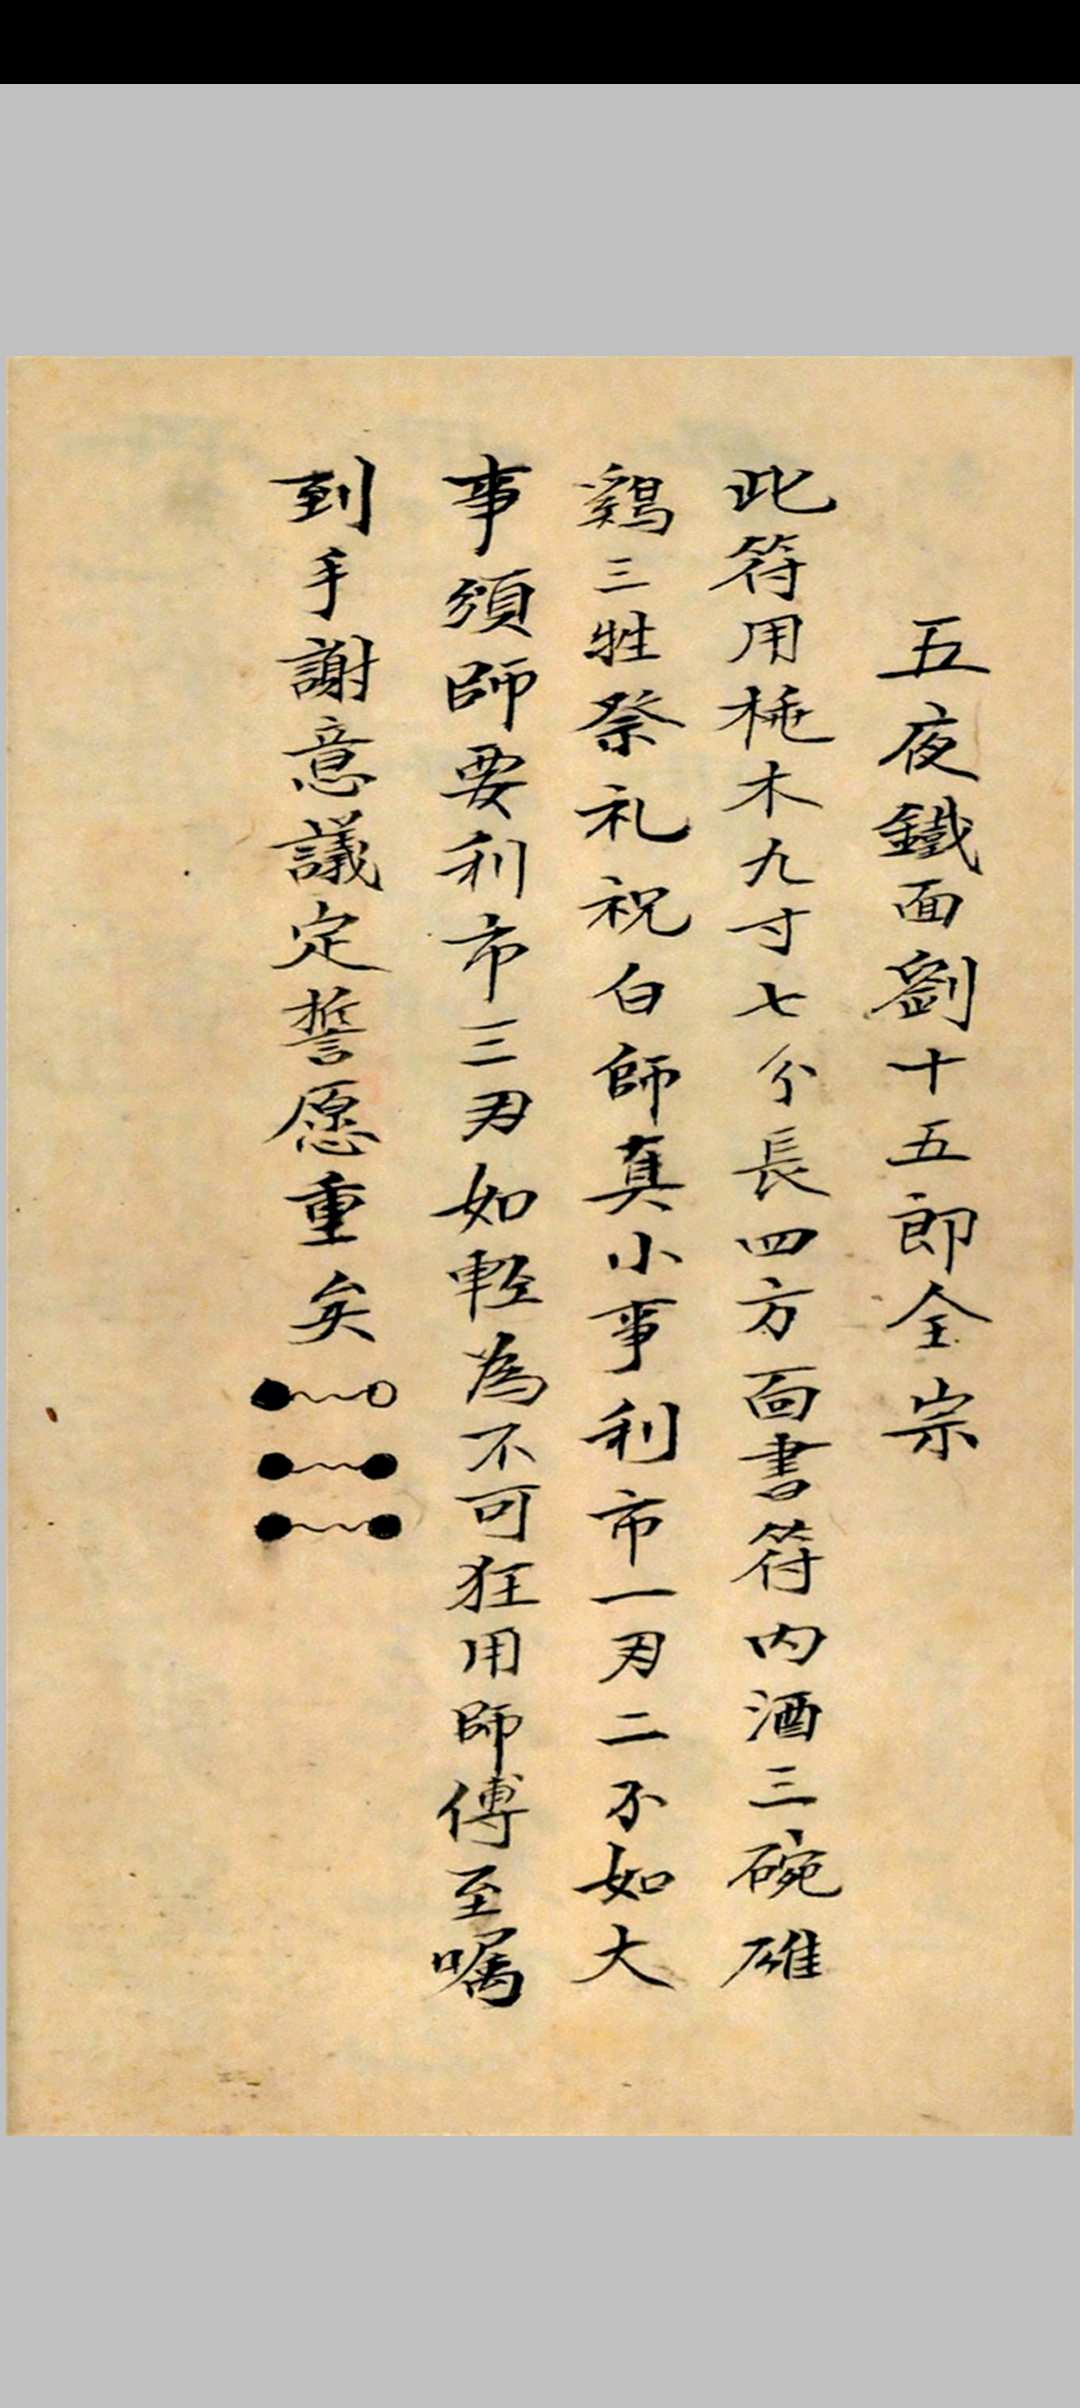 五夜鐵面劉十五郎全宗
此符用棰木九寸七分長四方面書符內酒三碗碓
鷄三牲祭礼祝白師真小事利市一刄二不如大
事須師要利市三刄如輕為不可狂用師傅至嘱
到手謝意議定誓愿重矣